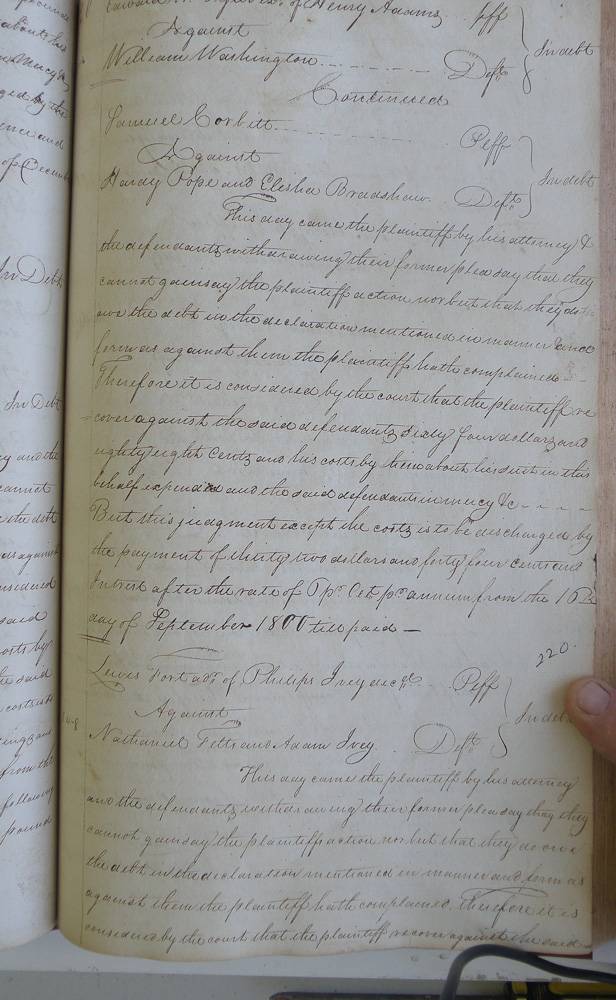 of Henry Adams Pff
Against
William Washington Deft In debt
Continued
Samuel Corbitt Peff
Against In debt
Hardy Pope and Elisha Bradshaw Defts
This day came the plaintiff by his attorney &
the defendants withdrawing their former plea say that they
cannot gainsay the plaintiff action nor but that they do
owe the debt in the declaration mentioned in manner and
form as against them the plaintiff hath complained
Therefore it is considered by the court that the plaintiff re
cover against the said defendants Sixty four dollars and
eighty eight Cents and his costs by him about his suit in this
behalf expended and the said defendants in mercy &c
But this judgment except the costs is to be discharged by
the payment of thirty two dollars and forty four cents and
Intrest after the rate of 6 pr Ct pr annum from the 16th
day of September 1800 till paid
220
Lewis Fort adr of Philips Ivey decd Peff
Against In debt
Nathaniel Felts and Adam Ivey Defts
This day came the plaintiff by his attorney
and the defendants withdrawing their former plea say they they
cannot gainsay the plaintiff action nor but that they do owe
the debt in the declaration mentioned in manner and form as
against them the plaintiff hath complained. Therefore it is
considered by the court that the plaintiff recover against the said